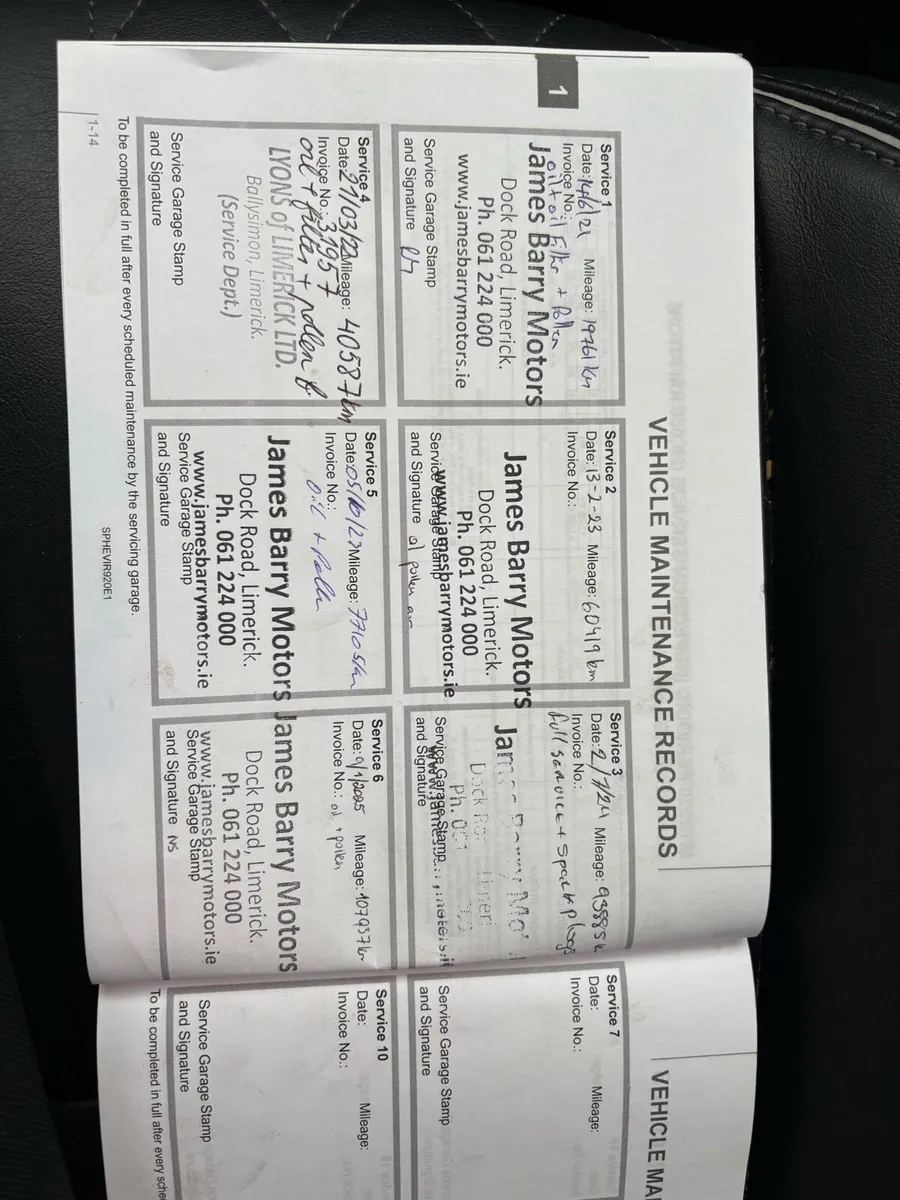 1
VEHICLE MAINTENANCE RECORDS
Service 1
Date: 14/6/21 Mileage: 19761 km
Invoice No.:
oil + oil Filter + Pollen
James Barry Motors
Dock Road, Limerick.
Ph. 061 224 000
www.jamesbarrymotors.ie
Service Garage Stamp
and Signature
Service 2
Date: 13-2-23 Mileage: 60419 km
Invoice No.:
James Barry Motors
Dock Road, Limerick.
Ph. 061 224 000
www.jamesbarrymotors.ie
Service Garage Stamp
and Signature pollen
Service 3
Date: 2/7/24 Mileage: 93885 k
Invoice No.:
full service + spark plugs
James Barry Mo
Dock Ro Limeri
Ph. 061
www.james motors.i
Service Garage Stamp
and Signature
Service 4
Date: 21/03/22 Mileage: 40587 km
Invoice No.: 31957
oil + filter + pollen f
LYONS of LIMERICK LTD.
Ballysimon, Limerick.
(Service Dept.)
Service Garage Stamp
and Signature
Service 5
Date: 05/10/23 Mileage: 77105 km
Invoice No.:
Oil + Pollen
James Barry Motors
Dock Road, Limerick.
Ph. 061 224 000
www.jamesbarrymotors.ie
Service Garage Stamp
and Signature
Service 6
Date: 9/1/2025 Mileage: 107937 km
Invoice No.: oil + pollen
James Barry Motors
Dock Road, Limerick.
Ph. 061 224 000
www.jamesbarrymotors.ie
Service Garage Stamp
and Signature NS
To be completed in full after every scheduled maintenance by the servicing garage.
1-14
SPHEVIR920E1
VEHICLE MAI
Service 7
Date: Mileage:
Invoice No.:
Service Garage Stamp
and Signature
Service 10
Date: Mileage:
Invoice No.:
Service Garage Stamp
and Signature
To be completed in full after every sche